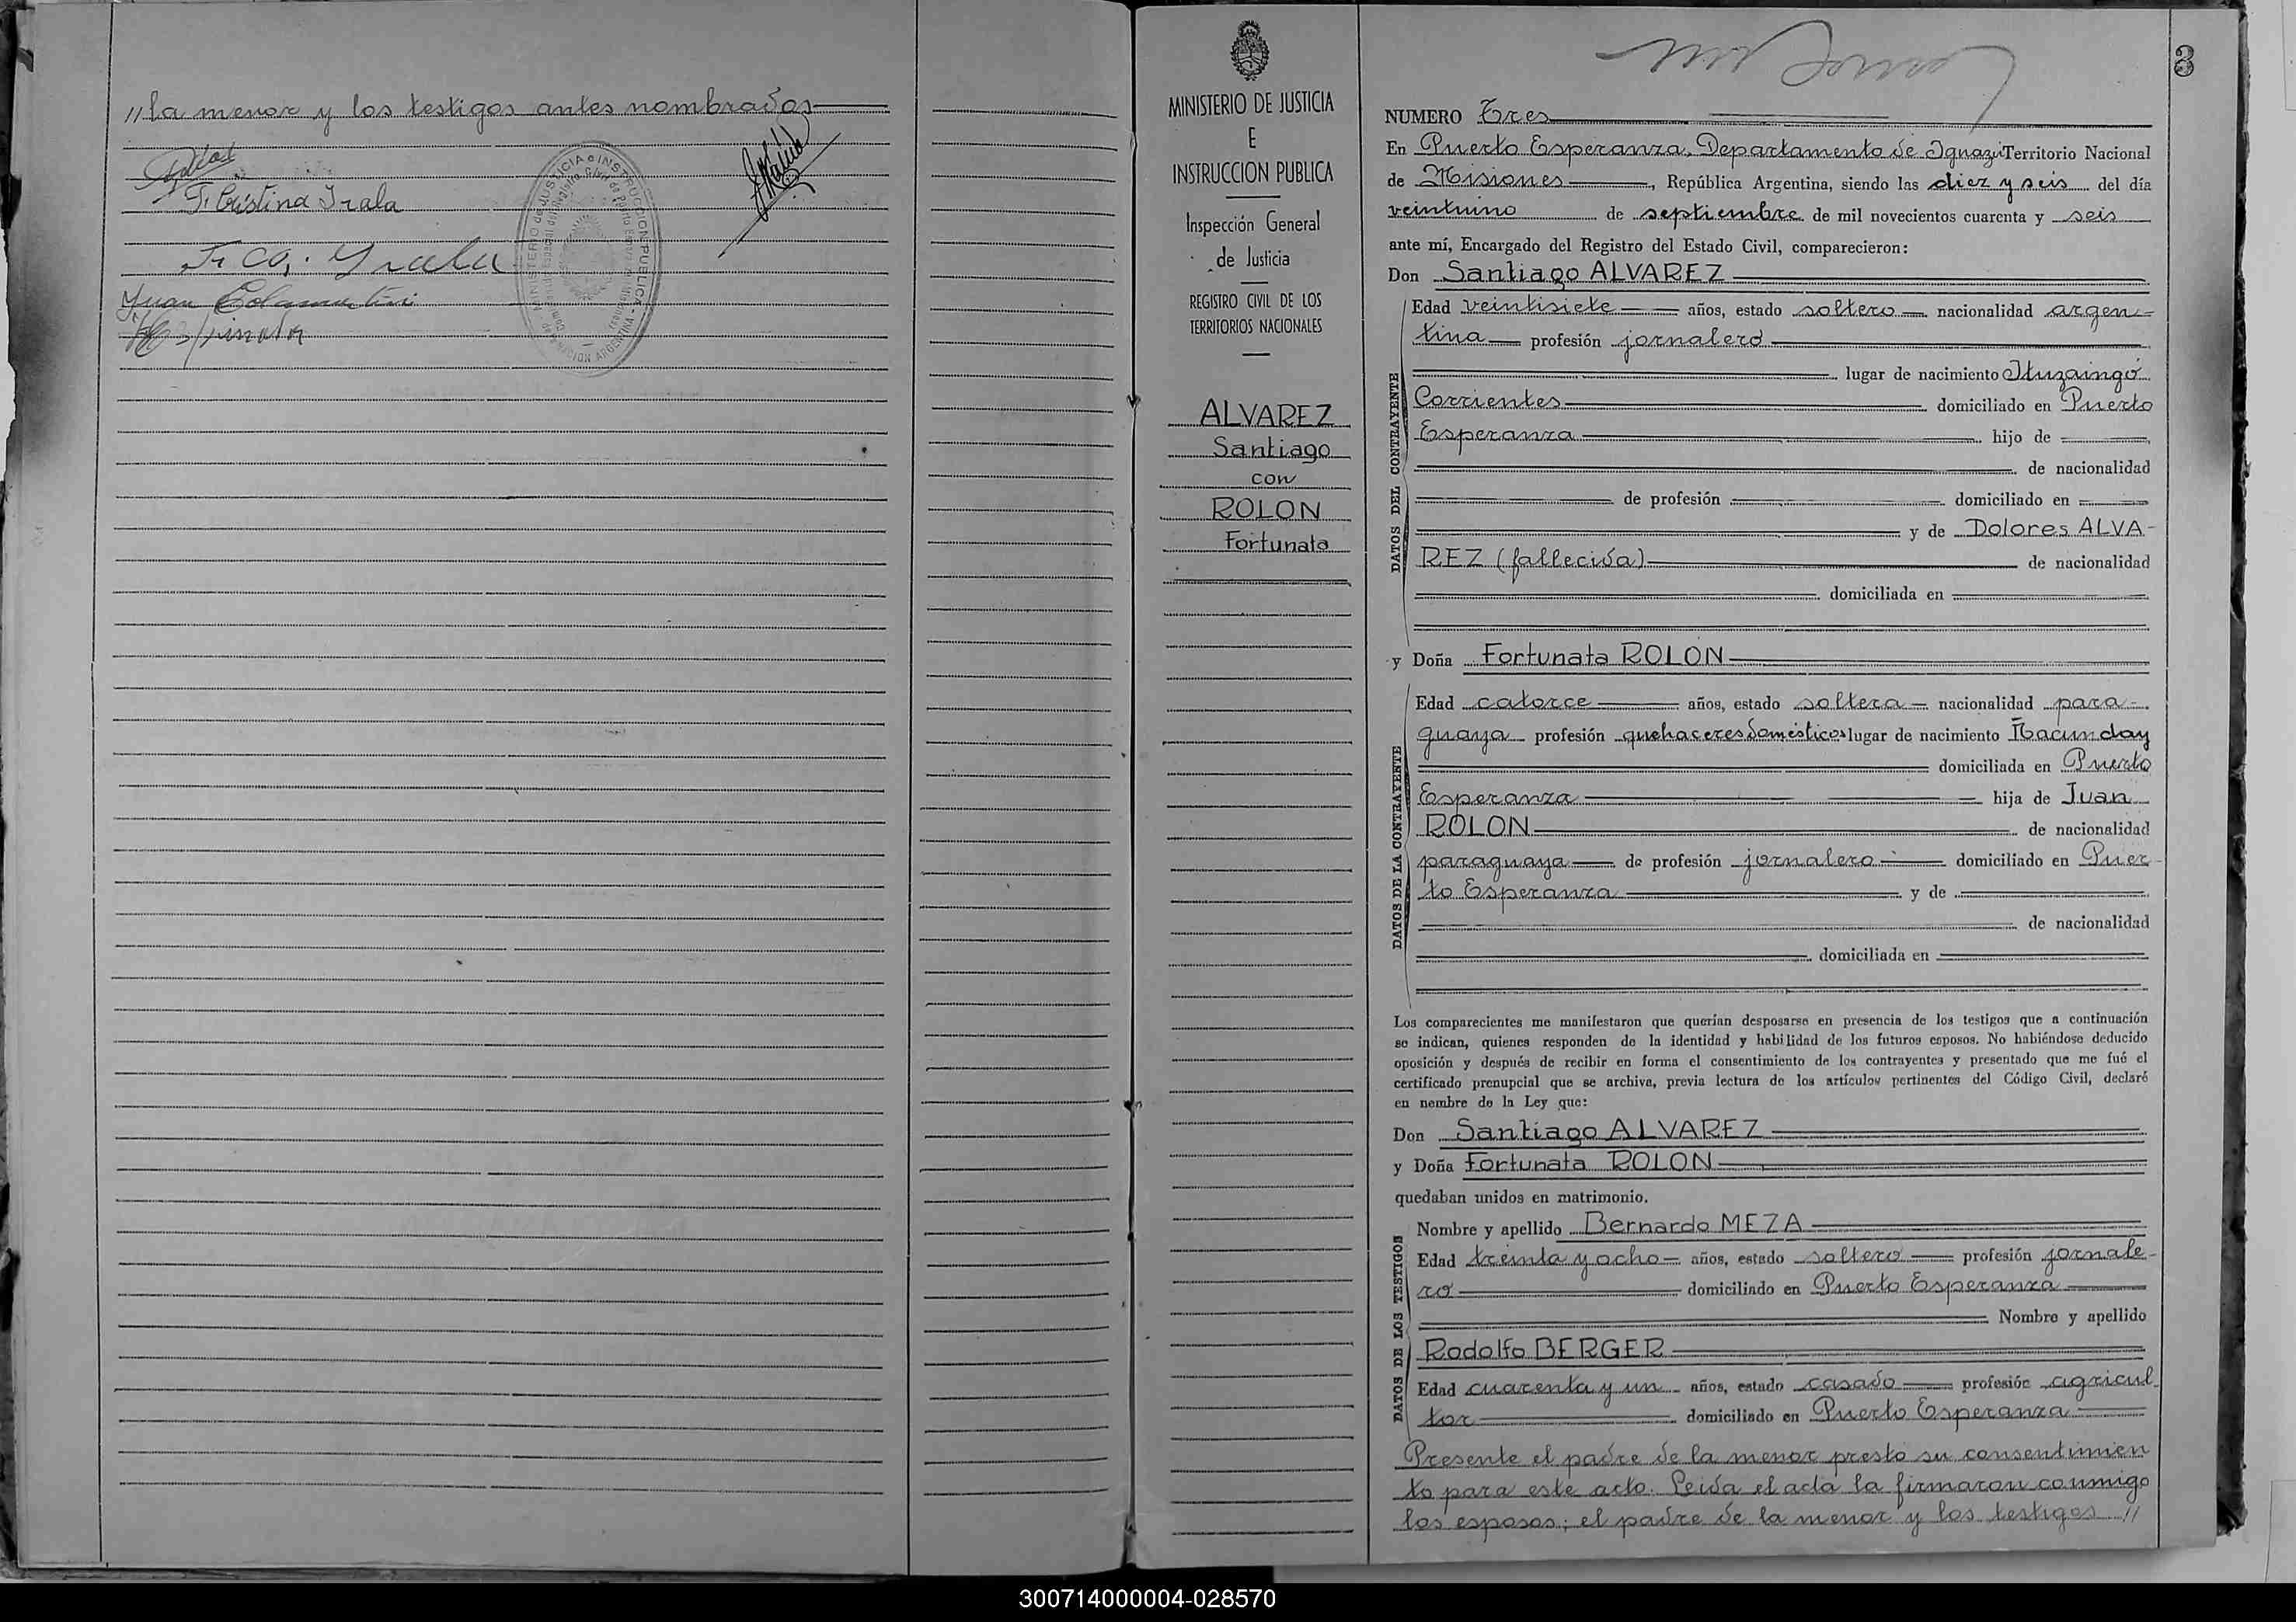 //la menor y los testigos antes nombrados
F. Cristina Irala
Fco. Irala
Juan
MINISTERIO DE JUSTICIA e INSTRUCCION PUBLICA
NACION ARGENTINA
MINISTERIO DE JUSTICIA
E
INSTRUCCION PUBLICA
Inspección General
de Justicia
REGISTRO CIVIL DE LOS
TERRITORIOS NACIONALES
ALVAREZ
Santiago
con
ROLON
Fortunata
3
NUMERO Tres
En Puerto Esperanza, Departamento de Iguazú Territorio Nacional
de Misiones, República Argentina, siendo las diez y seis del día
veintiuno de septiembre de mil novecientos cuarenta y seis
ante mí, Encargado del Registro del Estado Civil, comparecieron:
Don Santiago ALVAREZ
DATOS DEL CONTRAYENTE
Edad veintisiete años, estado soltero nacionalidad argen-
tina profesión jornalero
lugar de nacimiento Ituzaingó
Corrientes domiciliado en Puerto
Esperanza hijo de
de nacionalidad
de profesión domiciliado en
y de Dolores ALVA-
REZ (fallecida) de nacionalidad
domiciliada en
y Doña Fortunata ROLON
DATOS DE LA CONTRAYENTE
Edad catorce años, estado soltera nacionalidad para-
guaya profesión quehaceres domésticos lugar de nacimiento Ñacunday
domiciliada en Puerto
Esperanza hija de Juan
ROLON de nacionalidad
paraguaya de profesión jornalero domiciliado en Puer-
to Esperanza y de
de nacionalidad
domiciliada en
Los comparecientes me manifestaron que querían desposarse en presencia de los testigos que a continuación
se indican, quienes responden de la identidad y habilidad de los futuros esposos. No habiéndose deducido
oposición y después de recibir en forma el consentimiento de los contrayentes y presentado que me fué el
certificado prenupcial que se archiva, previa lectura de los artículos pertinentes del Código Civil, declaré
en nombre de la Ley que:
Don Santiago ALVAREZ
y Doña Fortunata ROLON
quedaban unidos en matrimonio.
DATOS DE LOS TESTIGOS
Nombre y apellido Bernardo MEZA
Edad treinta y ocho años, estado soltero profesión jornale-
ro domiciliado en Puerto Esperanza
Nombre y apellido
Rodolfo BERGER
Edad cuarenta y un años, estado casado profesión agricul-
tor domiciliado en Puerto Esperanza
Presente el padre de la menor prestó su consentimien
to para este acto. Leida el acta la firmaron conmigo
los esposos; el padre de la menor y los testigos //
300714000004-028570